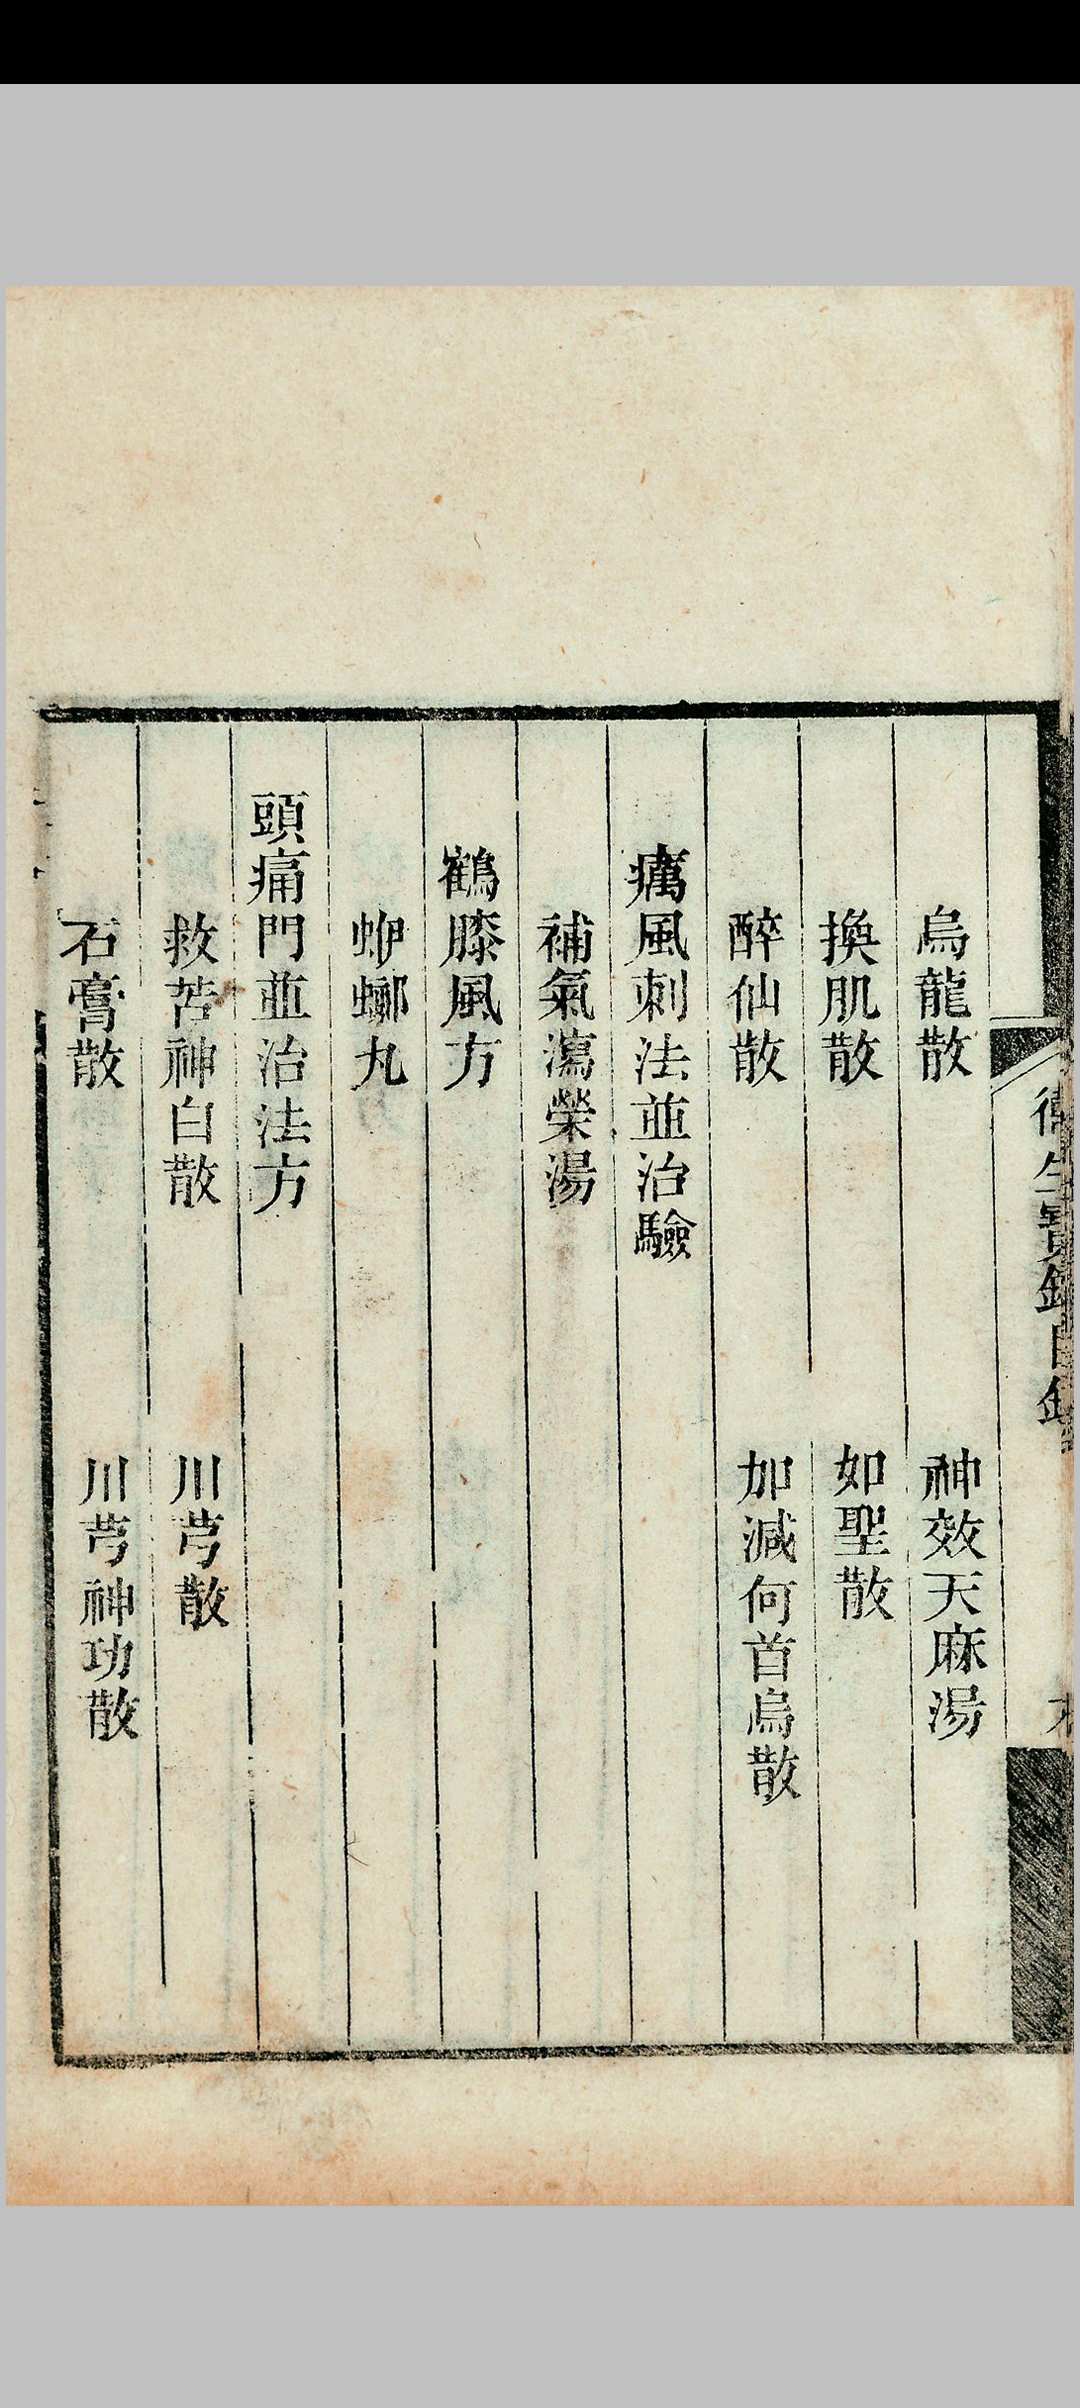 衛生寶鑑目錄
烏龍散　神效天麻湯
換肌散　如聖散
醉仙散　加減何首烏散
癘風刺法並治驗
補氣瀉榮湯
鶴膝風方
蛜螂丸
頭痛門並治法方
救苦神白散　川芎散
石膏散　川芎神功散